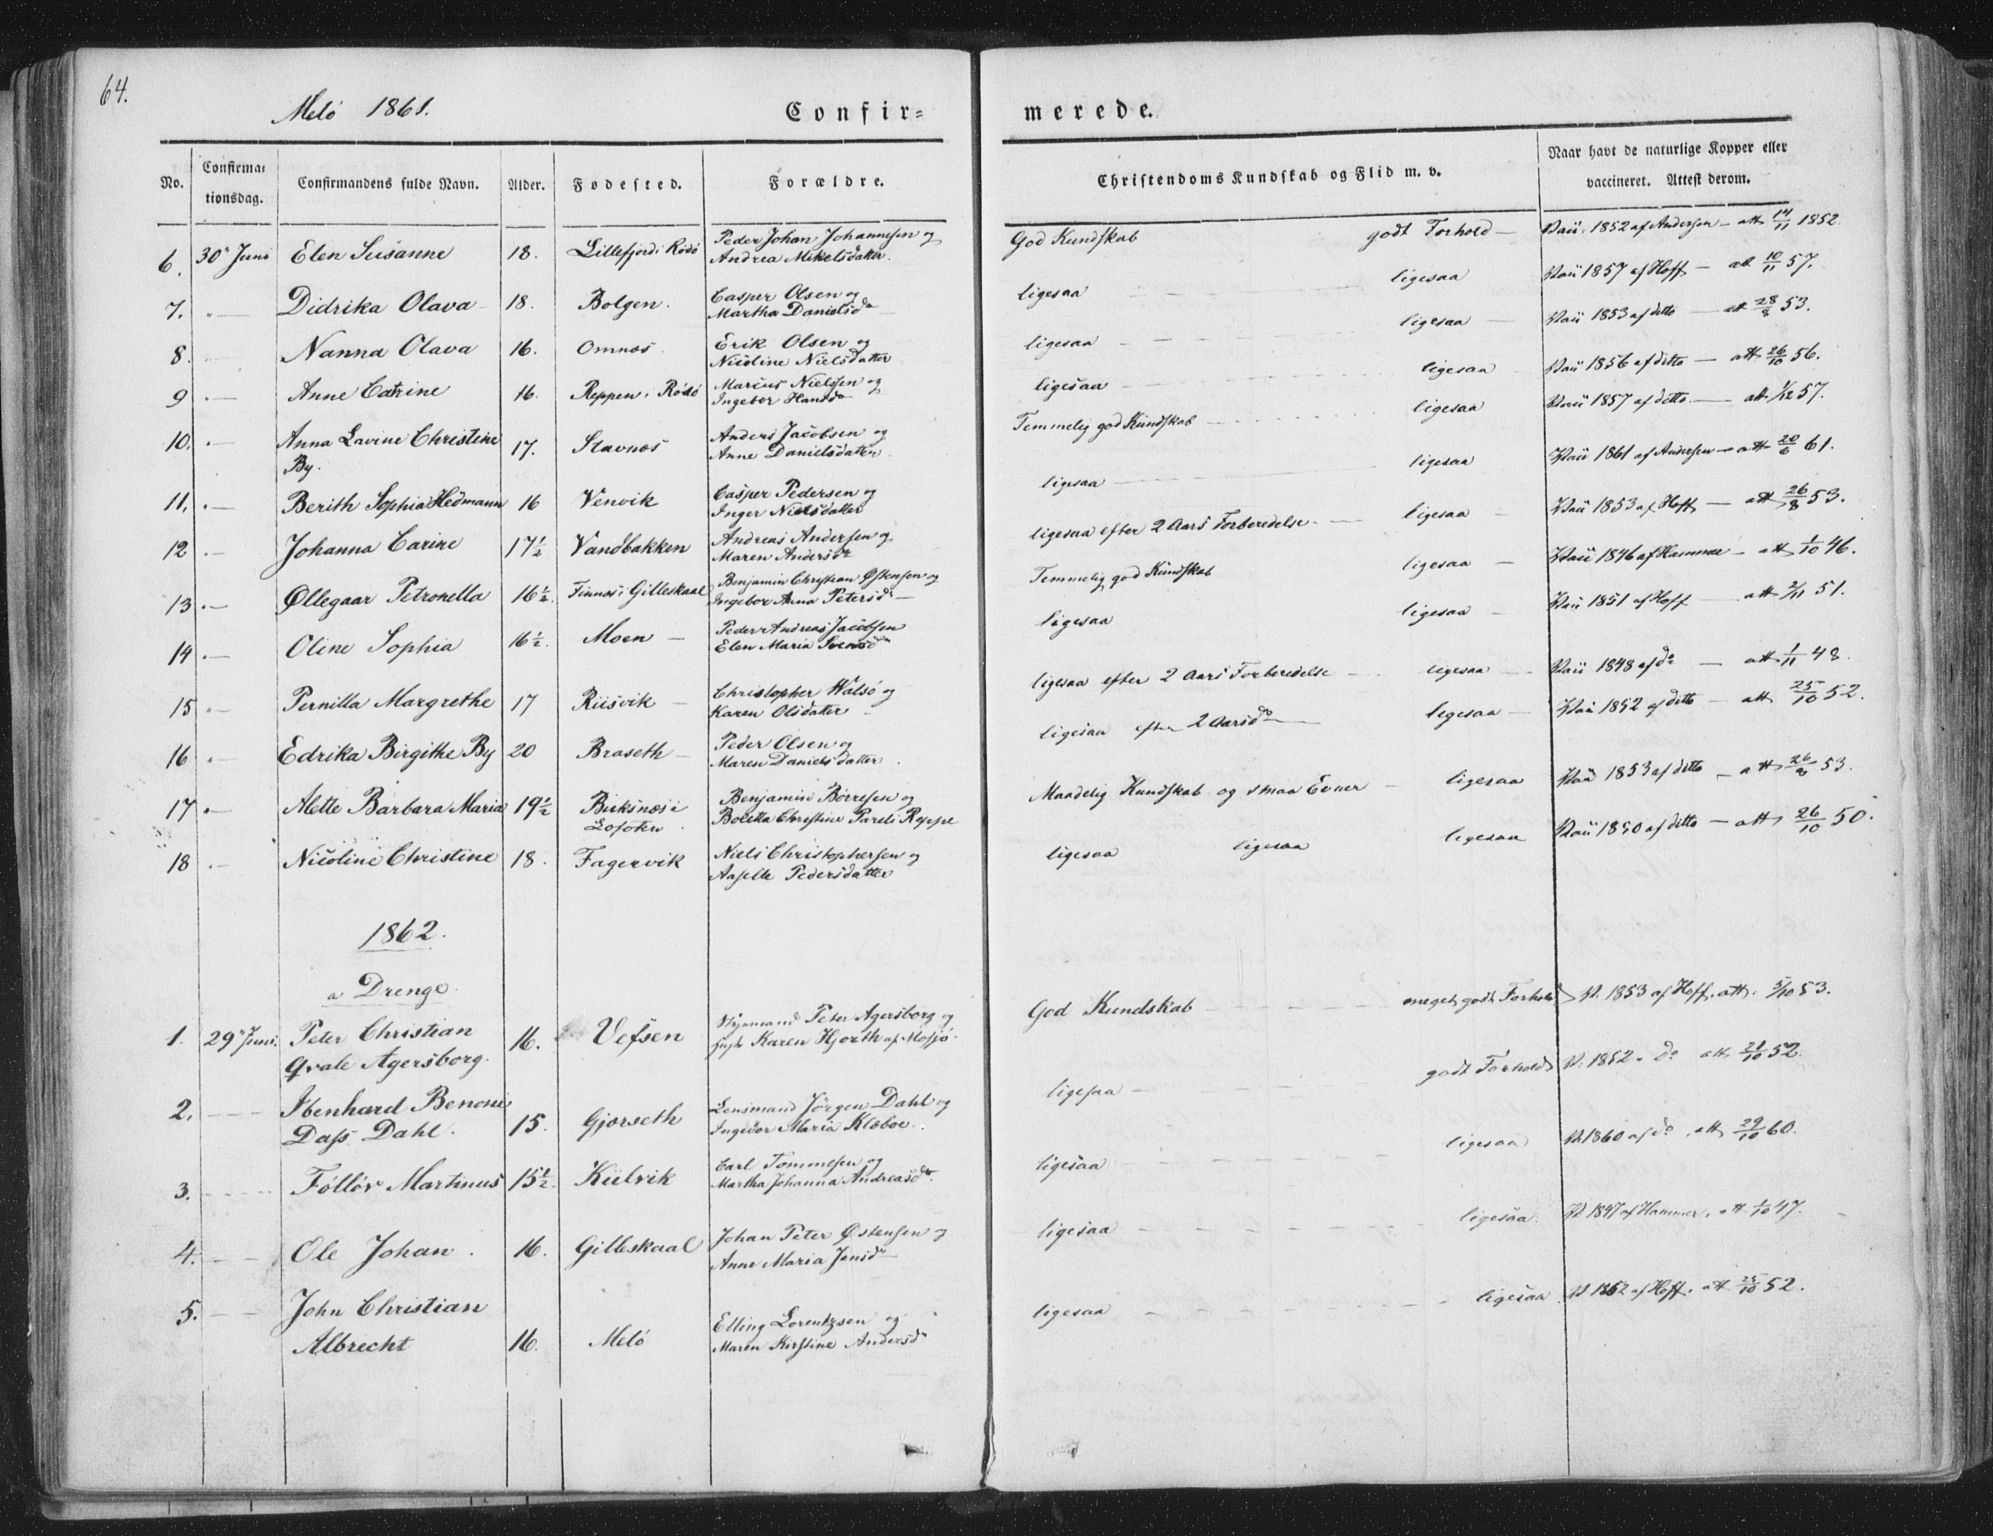 64.
Melö 1861.
Confir=
merede.
No.
Confirma=
tionsdag.
Confirmandens fulde Navn.
Alder.
Fødested.
Forældre.
Christendoms Kundskab og Flid m. v.
Naar havt de naturlige Kopper eller
vaccineret. Attest derom.
6. 30te Juni Elen Susanne 18. Lillefjord i Rödö Peder Johan Johannesen og
Andrea Mikelsdatter.
God Kundskab godt Forhold — Vacc. 1852 af Andersen — att 14/11 1852.
7. " — Didrika Olava 18. Bolgen. Casper Olsen og
Martha Danielsd.
ligesaa ligesaa Vacc 1857 af Hoff — att 10/11 57.
8. — Nanna Olava 16. Omnæs. Erik Olsen og
Nicoline Nielsdatter
ligesaa ligesaa — Vacc 1853 af ditto — att 28/8 53.
9 " — Anne Catrine 16. Reppen i Rödö Marius Nielsen og
Ingebor Hansd
ligesaa ligesaa Vacc 1856 af ditto — att 26/10 56.
10. " — Anna Lavine Christine
By. 17. Stavnæs Anders Jacobsen og
Anne Danielsdatter.
Temmelig god Kundskab ligesaa Vacc 1857 af ditto — att 1/12 57.
11. " — Berith Sophia Hedmann 16 Venvik Casper Pedersen og
Inger Nielsdatter
ligesaa ligesaa Vacc 1861 af Andersen — att 20/6 61.
12 " — Johanna Carine 17½ Vandbakken Andreas Andersen og
Maren Andersd
ligesaa efter 2 Aars Forberedelse. — ligesaa — Vacc 1853 af Hoff — att 26/8 53.
13 " — Øllegaar Petronella 16½. Finnæs i Gilleskaal Benjamin Christian Østensen og
Ingebor Anna Petersd —
Temmelig god Kundskab ligesaa — Vacc 1846 af Hammer — att 1/10 46.
14 " — Oline Sophia 16½. Moen — Peder Andreas Jacobsen
Elen Maria Svensd
ligesaa ligesaa — Vacc 1851 af Hoff — att 2/11 51.
15 " — Pernilla Margrethe 17 Riisvik — Christopher Walsø og
Karen Olsdatter
ligesaa efter 2 Aars Forberedelse ligesaa — Vacc 1848 af do — att 1/11 48.
16 " — Edrika Birgithe By 20 Braseth — Peder Olsen og
Maren Danielsdatter.
ligesaa efter 2 Aars do ligesaa — Vacc 1852 af ditto — att 25/10 52.
17 " — Alette Barbara Maria 19½ Birksnæs i
Lofoten. Benjamin Børresen og
Boletta Christine Parels Reppe
Maadelig Kundskab og smaa Evner — ligesaa Vacc 1853 af ditto — att 26/8 53.
18 " — Nicoline Christine 18. Fagervik Niels Christophersen og
Aaselle Pedersdatter
ligesaa ligesaa ligesaa Vacc 1850 af ditto — att 26/10 50.
1862.
a Drenge.
1. 29de Juni. Peter Christian
Qvale Agersborg. 16. Vefsen Styrmand Peter Agersborg og
Karen Hjorth af Mosjø.
God Kundskab meget godt Forhold V. 1853 af Hoff. att. 3/10 53.
2. — — Ibenhard Benoni
Dass Dahl. 15. Gjørseth Lensmand Jörgen Dahl og
Ingebor Maria Klæboe.
ligesaa godt Forhold V. 1852 " do att 21/10 52.
3. Föllör Martinus 15½. Külvik Carl Tommesen og
Martha Johanna Andreasd.
ligesaa ligesaa V. 1860 af do. att 29/10 60.
4. — — Ole Johan. 16. Gilleskaal Johan Peter Østensen og
Anne Maria Jensd
ligesaa ligesaa. V. 1847 af Hammer. att 1/10 47.
5. — — John Christian
Albrecht 16. Melö Elling Lorentzsen og
Maren Kirstine Andersd
ligesaa ligesaa V 1852 af Hoff. att 25/10 52.